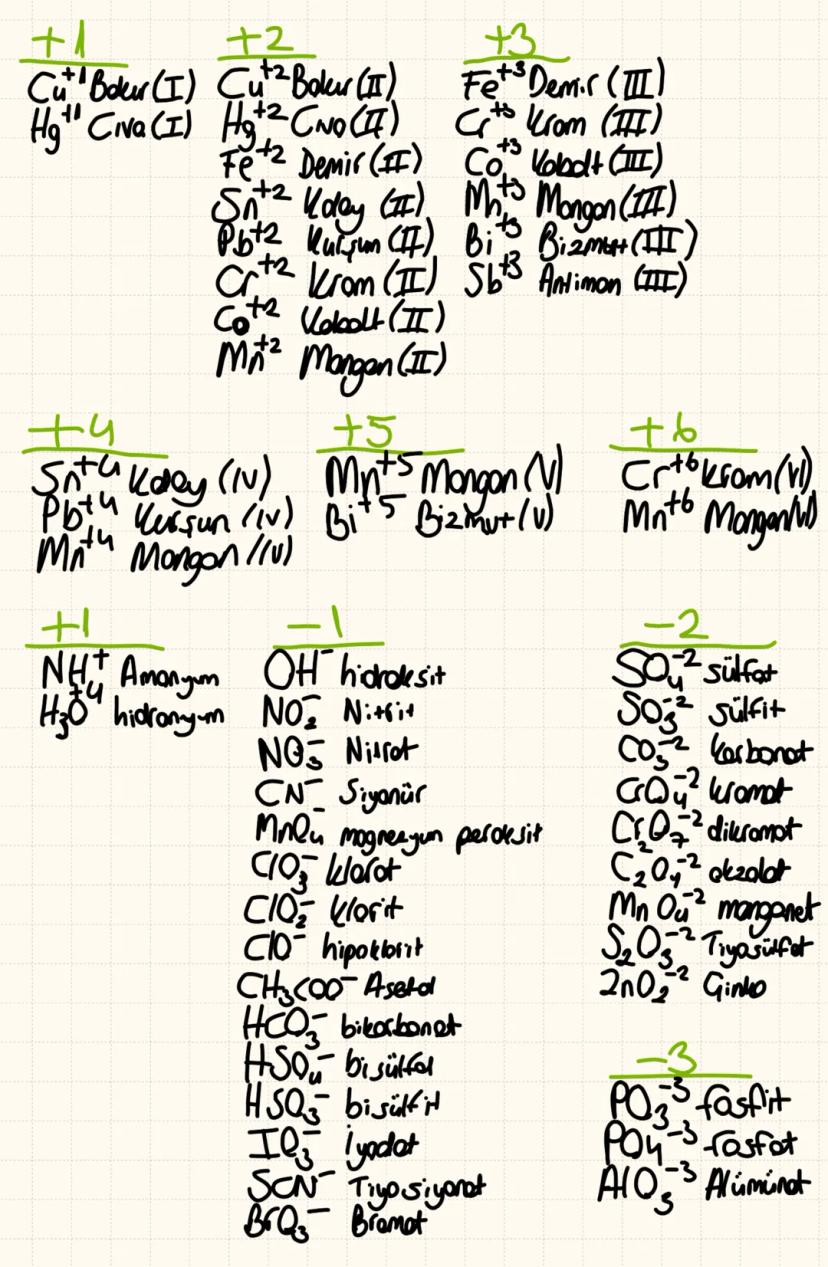 +1
Cu⁺¹ Bakır (I)
Hg⁺¹ Civa (I)
+2
Cu⁺² Bakır (II)
Hg⁺² Civa (II)
Fe⁺² Demir (II)
Sn⁺² Kalay (II)
Pb⁺² Kurşun (II)
Cr⁺² Krom (II)
Co⁺² Kobalt (II)
Mn⁺² Mangan (II)
+3
Fe⁺³ Demir (III)
Cr⁺³ Krom (III)
Co⁺³ Kobalt (III)
Mn⁺³ Mangan (III)
Bi⁺³ Bizmut (III)
Sb⁺³ Antimon (III)
+4
Sn⁺⁴ Kalay (IV)
Pb⁺⁴ Kurşun (IV)
Mn⁺⁴ Mangan (IV)
+5
Mn⁺⁵ Mangan (V)
Bi⁺⁵ Bizmut (V)
+6
Cr⁺⁶ Krom (VI)
Mn⁺⁶ Mangan (VI)
+1
NH₄⁺ Amonyum
H₃O⁺ hidronyum
-1
OH⁻ hidroksit
NO₂⁻ Nitrit
NO₃⁻ Nitrat
CN⁻ Siyanür
MnO₄⁻ magnezyum peroksit
ClO₃⁻ klorat
ClO₂⁻ klorit
ClO⁻ hipoklorit
CH₃COO⁻ Asetat
HCO₃⁻ bikarbonat
HSO₄⁻ bisülfat
HSO₃⁻ bisülfit
IO₃⁻ iyodat
SCN⁻ Tiyosiyanat
BrO₃⁻ Bromat
-2
SO₄⁻² sülfat
SO₃⁻² sülfit
CO₃⁻² karbonat
CrO₄⁻² kromat
Cr₂O₇⁻² dikromat
C₂O₄⁻² okzalat
MnO₄⁻² manganat
S₂O₃⁻² Tiyosülfat
ZnO₂⁻² Ginko
-3
PO₃⁻³ fosfit
PO₄⁻³ fosfat
AlO₃⁻³ Alüminat